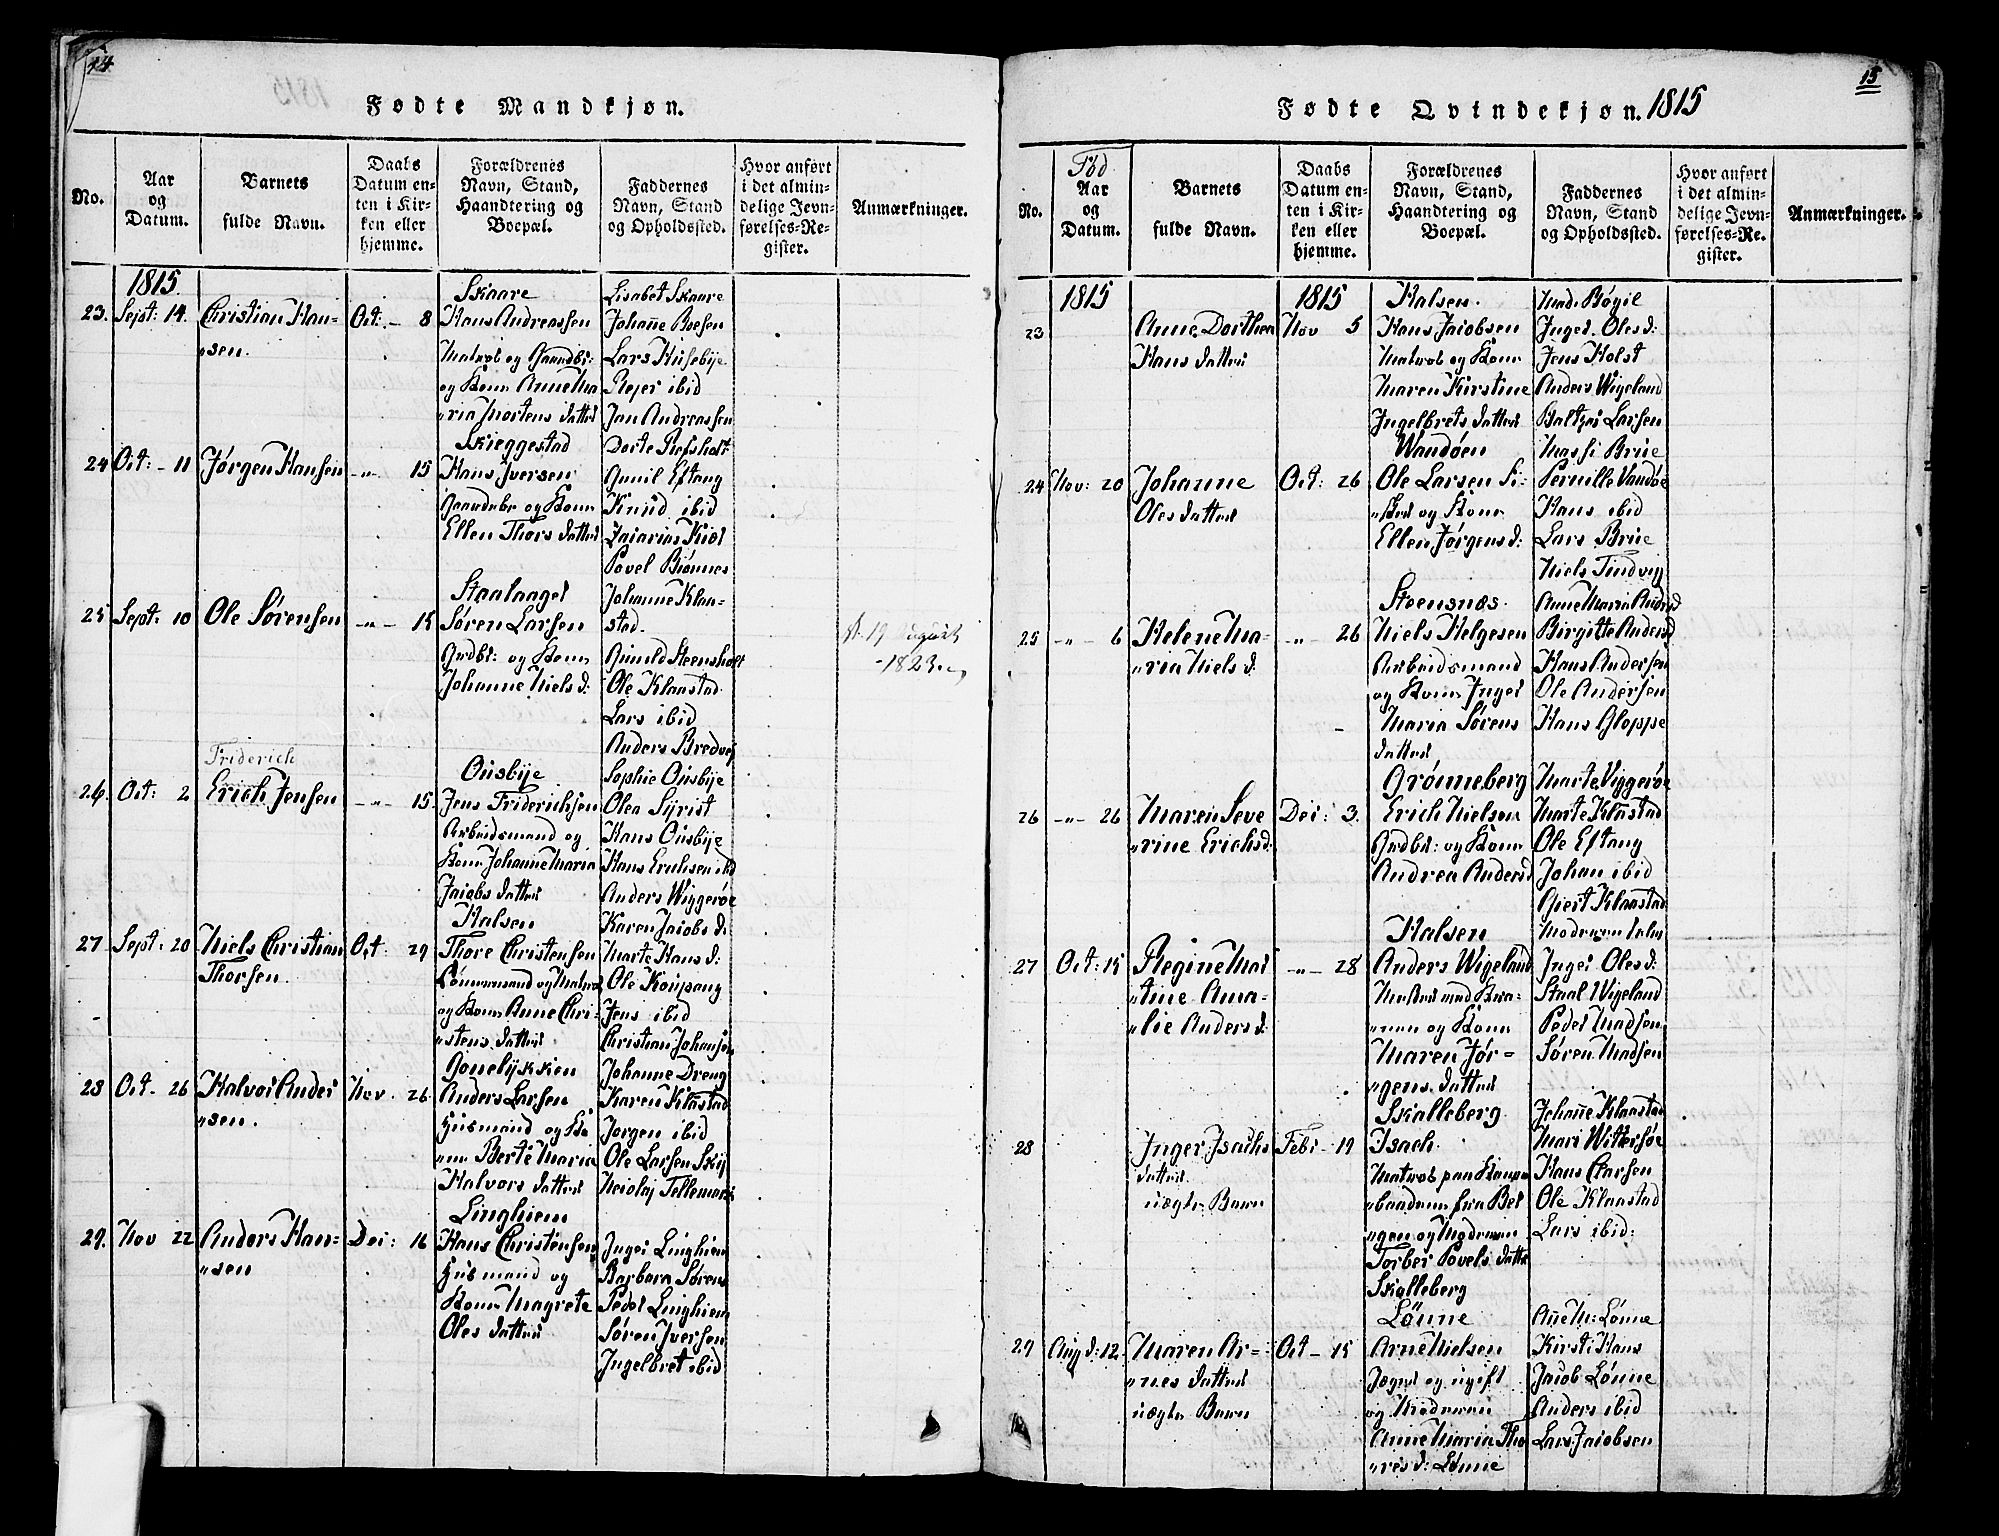 14
Fødte Mandkjøn.
No.
Aar
og
Datum.
Barnets
fulde Navn.
Daabs
Datum en-
ten i Kir-
ken eller
hjemme.
Forældrenes
Navn, Stand,
Haandtering og
Boepæl.
Faddernes
Navn, Stand
og Opholdssted.
Hvor anført
i det almin-
delige Jevn-
førelses-Re-
gister.
Anmærkninger.
1815.
23. Sept: 14.
Christian Han-
"sen.
Oct. - 8
Skaare
Hans Andreassen
Matros og
og Kone Anne Ma
"ria Mortens datter
Lisabet Skaare
Johañe Boesen
Lars Husebije
Rejer ibid
Jan Andreassen
24 Oct: - 11
Jørgen Hansen
-"- 15
Skieggestad
Hans Iversen
og Kone
Ellen Thors datter
Dorte Refsholt
Gunil Eftang
Knud ibid
Zacarias
Povel Biønnes
25 Sept: 10
Ole Sørensen
-"- 15
Staalaager
Søren Larsen
Grdbr: og Kone
Johanne Niels d:
Johanne Klaa-
stad.
Gunild Steensholt
Ole Klaastad
Lars ibid
Anders Bredvej
d. 19 August
- 1823.
26. Oct: 2
Friderich
Erich Jensen
-"- 15.
Ousbije
Jens Friderichsen
Arbeidsmand og
Kone Johanne Maria
Jacobs datter
Sophie Ousbije
Olea Syrist
Hans Ousbije
Hans Erichsen ibd
Anders Wiggerøe
27 Sept: 20
Niels Christian
Thorsen.
Oct: 29
Halsen
Thore Christensen
og Matros
og Kone Anne Chri-
"stens datter
Karen Jacobs d:
Marte Hans d:
Ole Koupang
Jens ibid
Christian Johansen
28 Oct. 26
Halvor Ander
"sen.
Nov. 26.
Gonelykken
Anders Larsen
Husmand og Ko
"ne Berte Maria
Halvors datter
Johanne Dreng
Karen Klastad
Jorgen ibid
Ole Larsen
Nicolaj Tellemark
29. Nov 22
Anders Han-
"sen
Dec: 16
Linghiem
Hans Christensen
Husmand og
Kone Magrete
Oles datter
Inger Linghiem
Barbara Sørens
Peder Linghiem
Søren Iversen
Ingelbret ibid
15
Fødte Qvindekjøn. 1815
No.
Fød
Aar
og
Datum.
Barnets
fulde Navn.
Daabs
Datum en-
ten i Kir-
ken eller
hjemme.
Forældrenes
Navn, Stand,
Haandtering og
Boepæl.
Faddernes
Navn, Stand
og Opholdssted.
Hvor anført
i det almin-
delige Jevn-
førelses-Re-
gister.
Anmærkninger.
1815
1815
23
Anne Dorthea
Hans datter
Nov 5
Halsen.
Hans Jacobsen
Matros og Kone
Maren Kirstine
Ingelbrets datter
Mad. Bøgil
Inger Oles d:
Jens Holst
Anders Wigeland
Baltzer Larsen
24 Nov: 20
Johanne
Oles datter
Oct: 26
Wandøen
Ole Larsen Fi-
"sker og Kone
Ellen Jørgens d:
Massi Brue
Pernille Vandøe
Hans ibid
Lars Brue
Niels Tindvig
25 -"- 6
Helene Ma-
"ria Niels d:
-"- 26
Steensnæs.
Niels Helgesen
Arbeidsmand
og Kone Inger
Maria Sørens
datter
Anne Maria Anders
Birgitte Anders d
Hans Andersen
Ole Andersen
Hans Gloppe
26 -"- 26
Maren Seve
"rine Erichs d:
Dec: 3.
Grønneberg
Erich Nielsen
Grdbr: og Kone
Andrea Anders d
Marte Viggerøe
Marte Klastad
Ole Eftang
Johan ibid
Giert Klaastad
27 Oct: 15
Regine Mar
"tine Ama-
"lie Anders d:
-"- 28
Halsen
Anders Wigeland
og Kone
Maren Jør-
"gens datter
Inger Oles d:
Staal Wigeland
Peder Madsen
Søren Madsen
28
Inger Isachs
datter
uægte Barn
Febr - 19
Skalleberg
Isach
Matros paa
fra Ber
"gen og Moderen
Torber Povels datter
Skalleberg
Johañe Klaastad
Mari Wittersøe
Hans Clarsen
Ole Klaastad
Lars ibid:
29 Aug d: 12.
Maren Ar-
"nes datter
uægte Barn
Oct - 15
Lønne
Arne Nielsen
Jæger og ugift
og Moderen
Anne Maria Tho
"res d: Lønne
Añe M: Lønne
Kirsti Hans
Jacob Lønne
Anders ibid
Lars Jacobsen